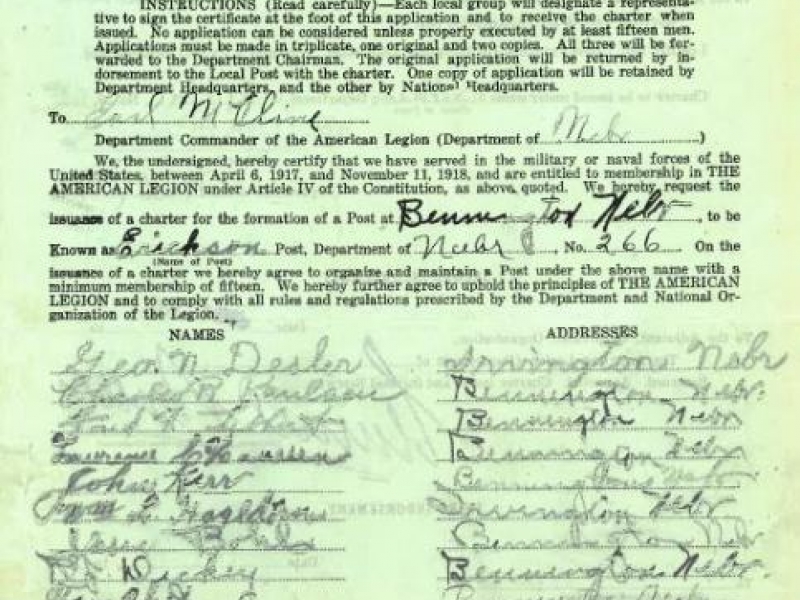 INSTRUCTIONS (Read carefully)—Each local group will designate a representa-
tive to sign the certificate at the foot of this application and to receive the charter when
issued. No application can be considered unless properly executed by at least fifteen men.
Applications must be made in triplicate, one original and two copies. All three will be for-
warded to the Department Chairman. The original application will be returned by in-
dorsement to the Local Post with the charter. One copy of application will be retained by
Department Headquarters, and the other by National Headquarters.
To Earl M Cline
Department Commander of the American Legion (Department of Nebr )
We, the undersigned, hereby certify that we have served in the military or naval forces of the
United States, between April 6, 1917, and November 11, 1918, and are entitled to membership in THE
AMERICAN LEGION under Article IV of the Constitution, as above quoted. We hereby request the
issuance of a charter for the formation of a Post at Bennington Nebr, to be
Known as Erickson Post, Department of Nebr, No. 266 On the
(Name of Post)
issuance of a charter we hereby agree to organize and maintain a Post under the above name with a
minimum membership of fifteen. We hereby further agree to uphold the principles of THE AMERICAN
LEGION and to comply with all rules and regulations prescribed by the Department and National Or-
ganization of the Legion.
NAMES ADDRESSES
Geo. N. Desler Irvington Nebr
Charles R Paulsen Bennington Nebr.
Bennington Nebr
Bennington Nebr
John Kerr Bennington Nebr
Irvington Nebr
Bennington Nebr
Dickey Bennington Nebr.